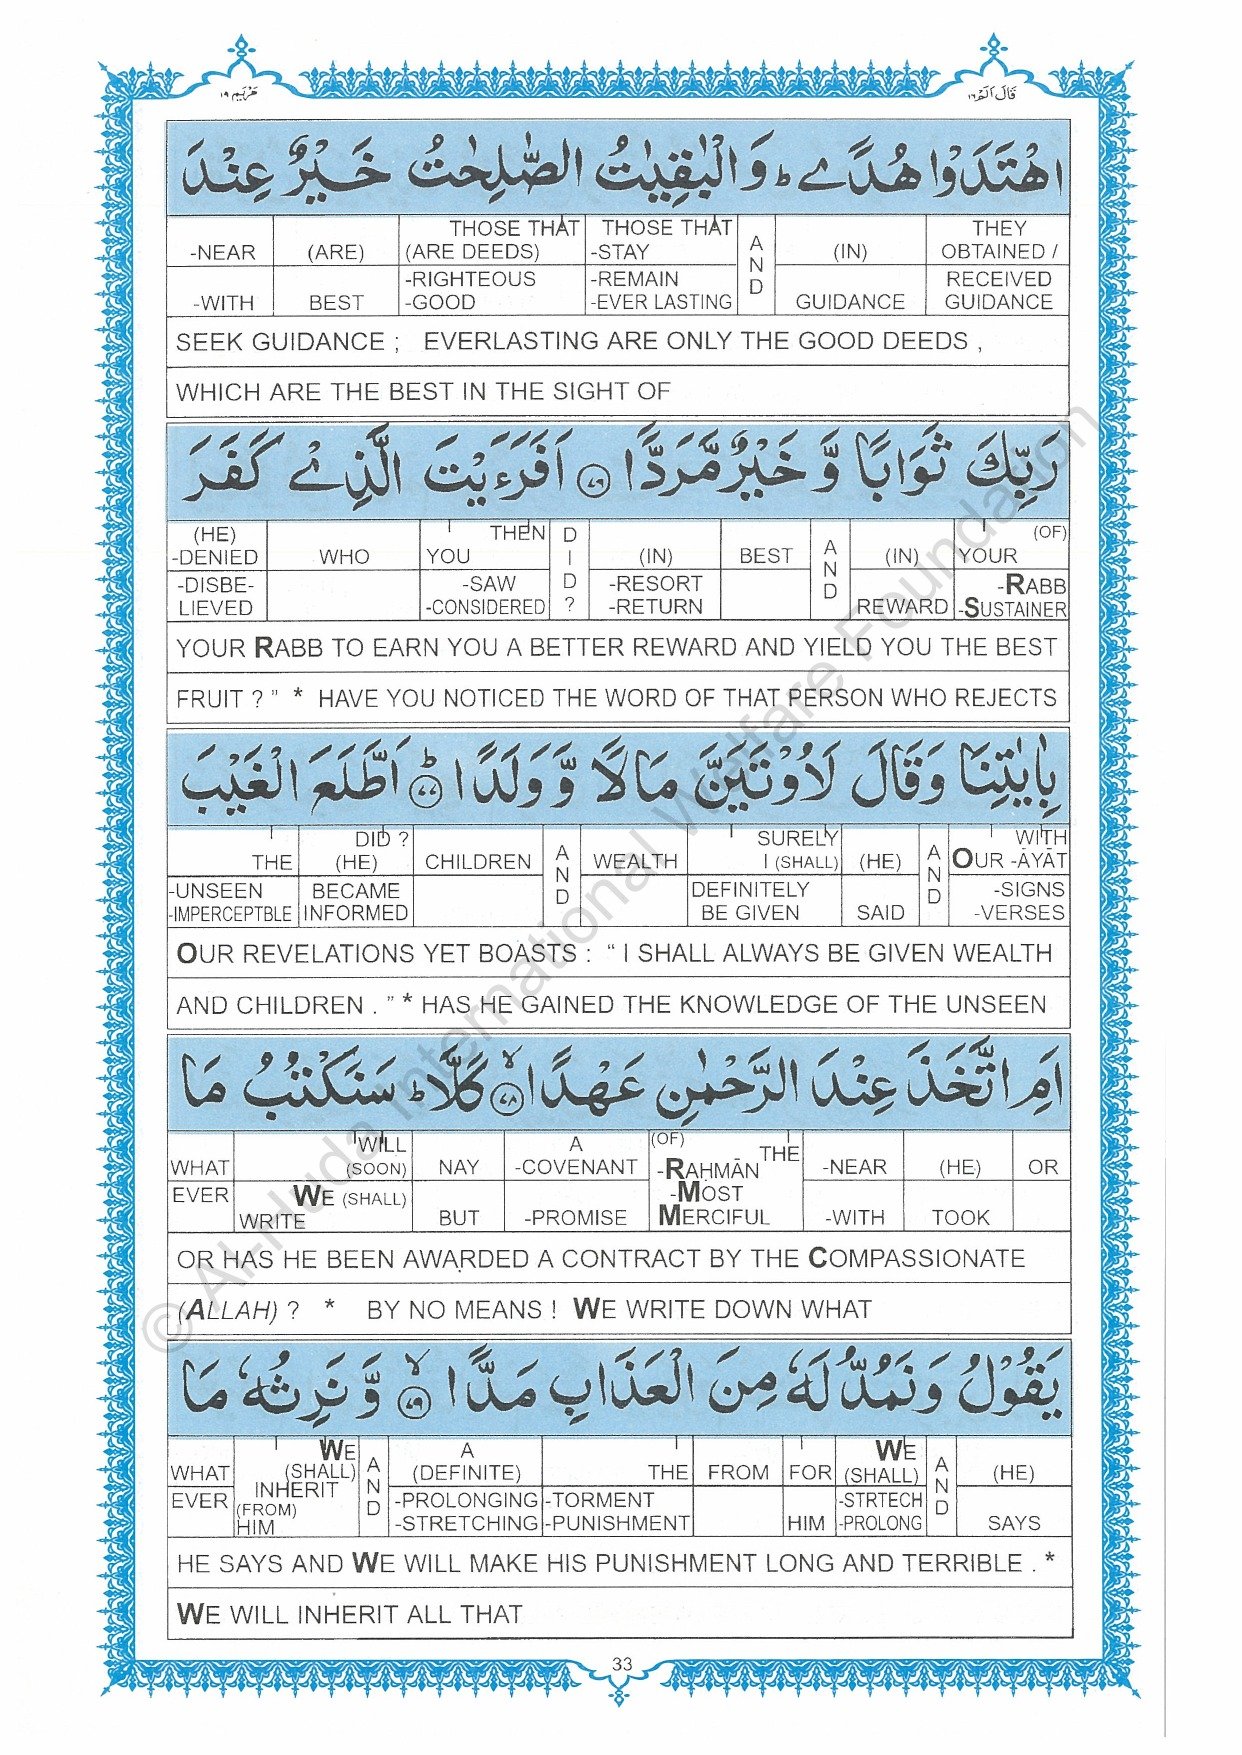 مَرْيَم ١٩
قَالَ اَلَمْ ١٦
اهْتَدَوْا هُدًى ؕ وَالْبٰقِيٰتُ الصّٰلِحٰتُ خَيْرٌ عِنْدَ
-NEAR (ARE) THOSE THAT (ARE DEEDS) THOSE THAT -STAY AND (IN) THEY OBTAINED /
-WITH BEST -RIGHTEOUS -GOOD -REMAIN -EVER LASTING GUIDANCE RECEIVED GUIDANCE
SEEK GUIDANCE ; EVERLASTING ARE ONLY THE GOOD DEEDS ,
WHICH ARE THE BEST IN THE SIGHT OF
رَبِّكَ ثَوَابًا وَّ خَيْرٌ مَّرَدًّا ۝۷۶ اَفَرَءَيْتَ الَّذِيْ كَفَرَ
(HE) -DENIED WHO THEN YOU DID? (IN) BEST AND (IN) (OF) YOUR
-DISBE-LIEVED -SAW -CONSIDERED -RESORT -RETURN REWARD -RABB -SUSTAINER
YOUR RABB TO EARN YOU A BETTER REWARD AND YIELD YOU THE BEST
FRUIT ? ” * HAVE YOU NOTICED THE WORD OF THAT PERSON WHO REJECTS
بِاٰيٰتِنَا وَقَالَ لَاُوْتَيَنَّ مَالًا وَّ وَلَدًا ؕ۝۷۷ اَطَّلَعَ الْغَيْبَ
THE DID ? (HE) CHILDREN AND WEALTH SURELY I (SHALL) (HE) AND WITH OUR -ĀYĀT
-UNSEEN -IMPERCEPTBLE BECAME INFORMED DEFINITELY BE GIVEN SAID -SIGNS -VERSES
OUR REVELATIONS YET BOASTS : “ I SHALL ALWAYS BE GIVEN WEALTH
AND CHILDREN . ” * HAS HE GAINED THE KNOWLEDGE OF THE UNSEEN
اَمِ اتَّخَذَ عِنْدَ الرَّحْمٰنِ عَهْدًا ۙ۝۷۸ كَلَّا ؕ سَنَكْتُبُ مَا
WHAT WILL (SOON) NAY A -COVENANT (OF) THE -RAḤMĀN -NEAR (HE) OR
EVER WE (SHALL) WRITE BUT -PROMISE -MOST MERCIFUL -WITH TOOK
OR HAS HE BEEN AWARDED A CONTRACT BY THE COMPASSIONATE
(ALLAH) ? * BY NO MEANS ! WE WRITE DOWN WHAT
يَقُوْلُ وَنَمُدُّ لَهٗ مِنَ الْعَذَابِ مَدًّا ۙ۝۷۹ وَّ نَرِثُهٗ مَا
WHAT WE (SHALL) INHERIT AND A (DEFINITE) THE FROM FOR WE (SHALL) AND (HE)
EVER (FROM) HIM -PROLONGING -STRETCHING -TORMENT -PUNISHMENT HIM -STRTECH -PROLONG SAYS
HE SAYS AND WE WILL MAKE HIS PUNISHMENT LONG AND TERRIBLE . *
WE WILL INHERIT ALL THAT
33
© Al-Huda International Welfare Foundation